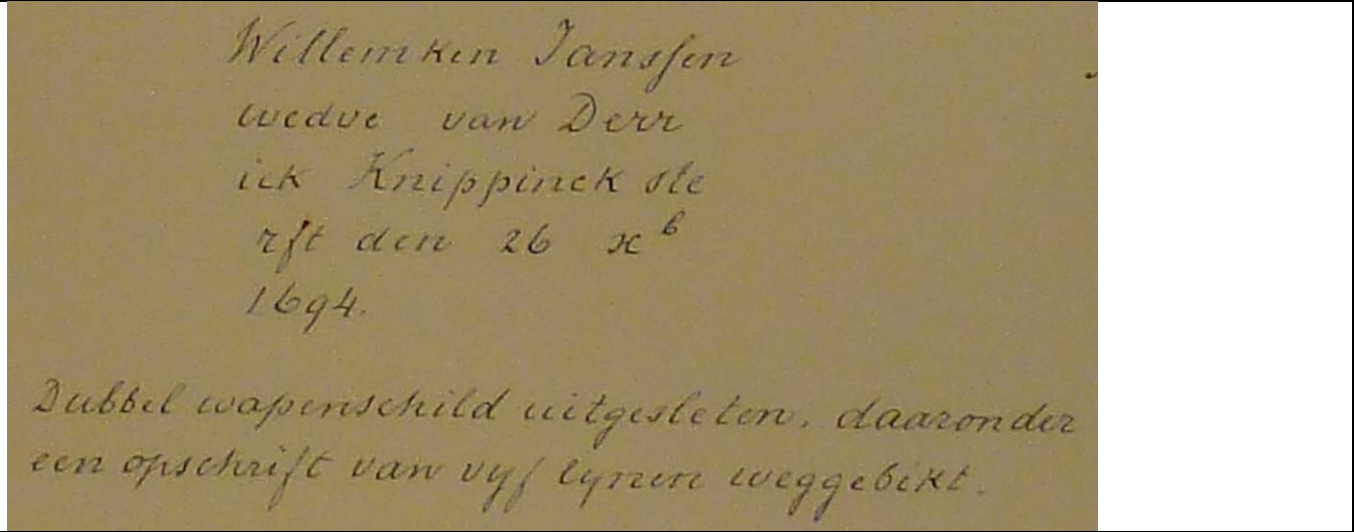 Willemken Janssen
wedve van Derr
ick Knippinck ste
rft den 26 x^b
1694.
Dubbel wapenschild uitgesleten, daaronder
een opschrift van vyf lynen weggebikt.